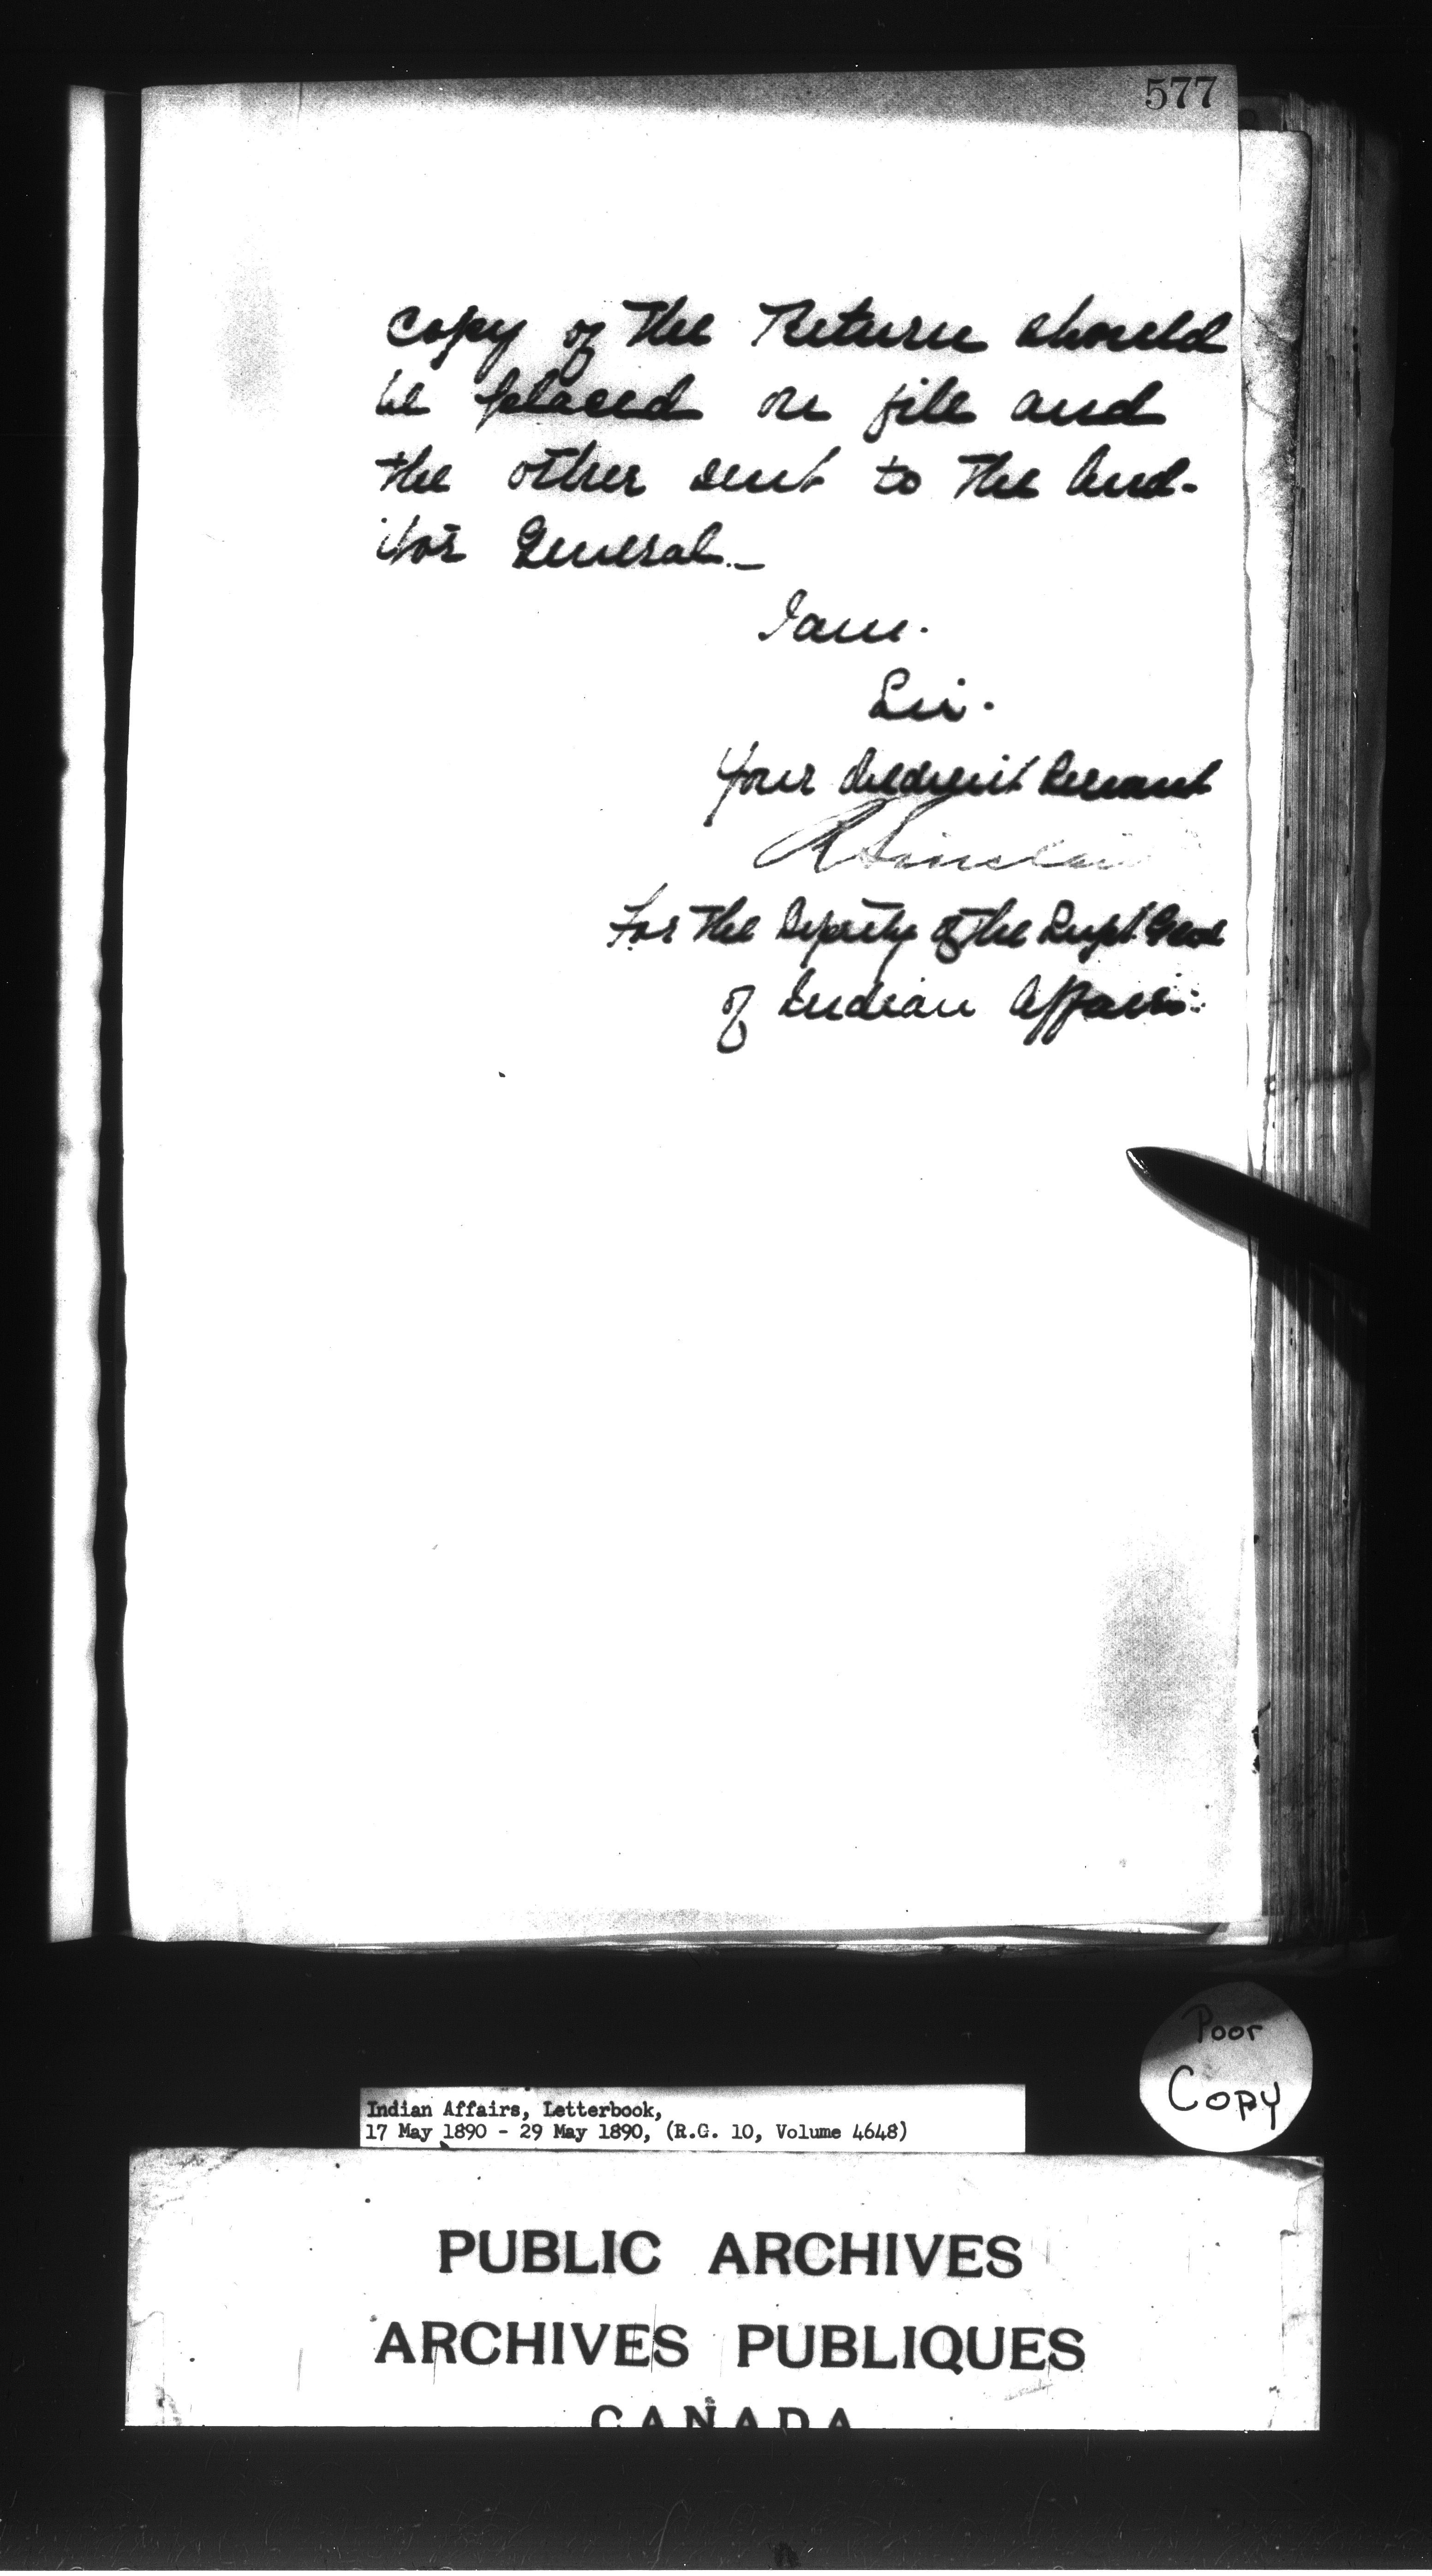 577
copy of the Return should
be placed on file and
the other sent to the Aud-
itor General._
I am.
Sir.
Your Obedient Servant
R Sinclair
For the Deputy of the Supt. Genl
of Indian Affairs.
Poor
Copy
Indian Affairs, Letterbook,
17 May 1890 - 29 May 1890, (R.G. 10, Volume 4648)
PUBLIC ARCHIVES
ARCHIVES PUBLIQUES
CANADA